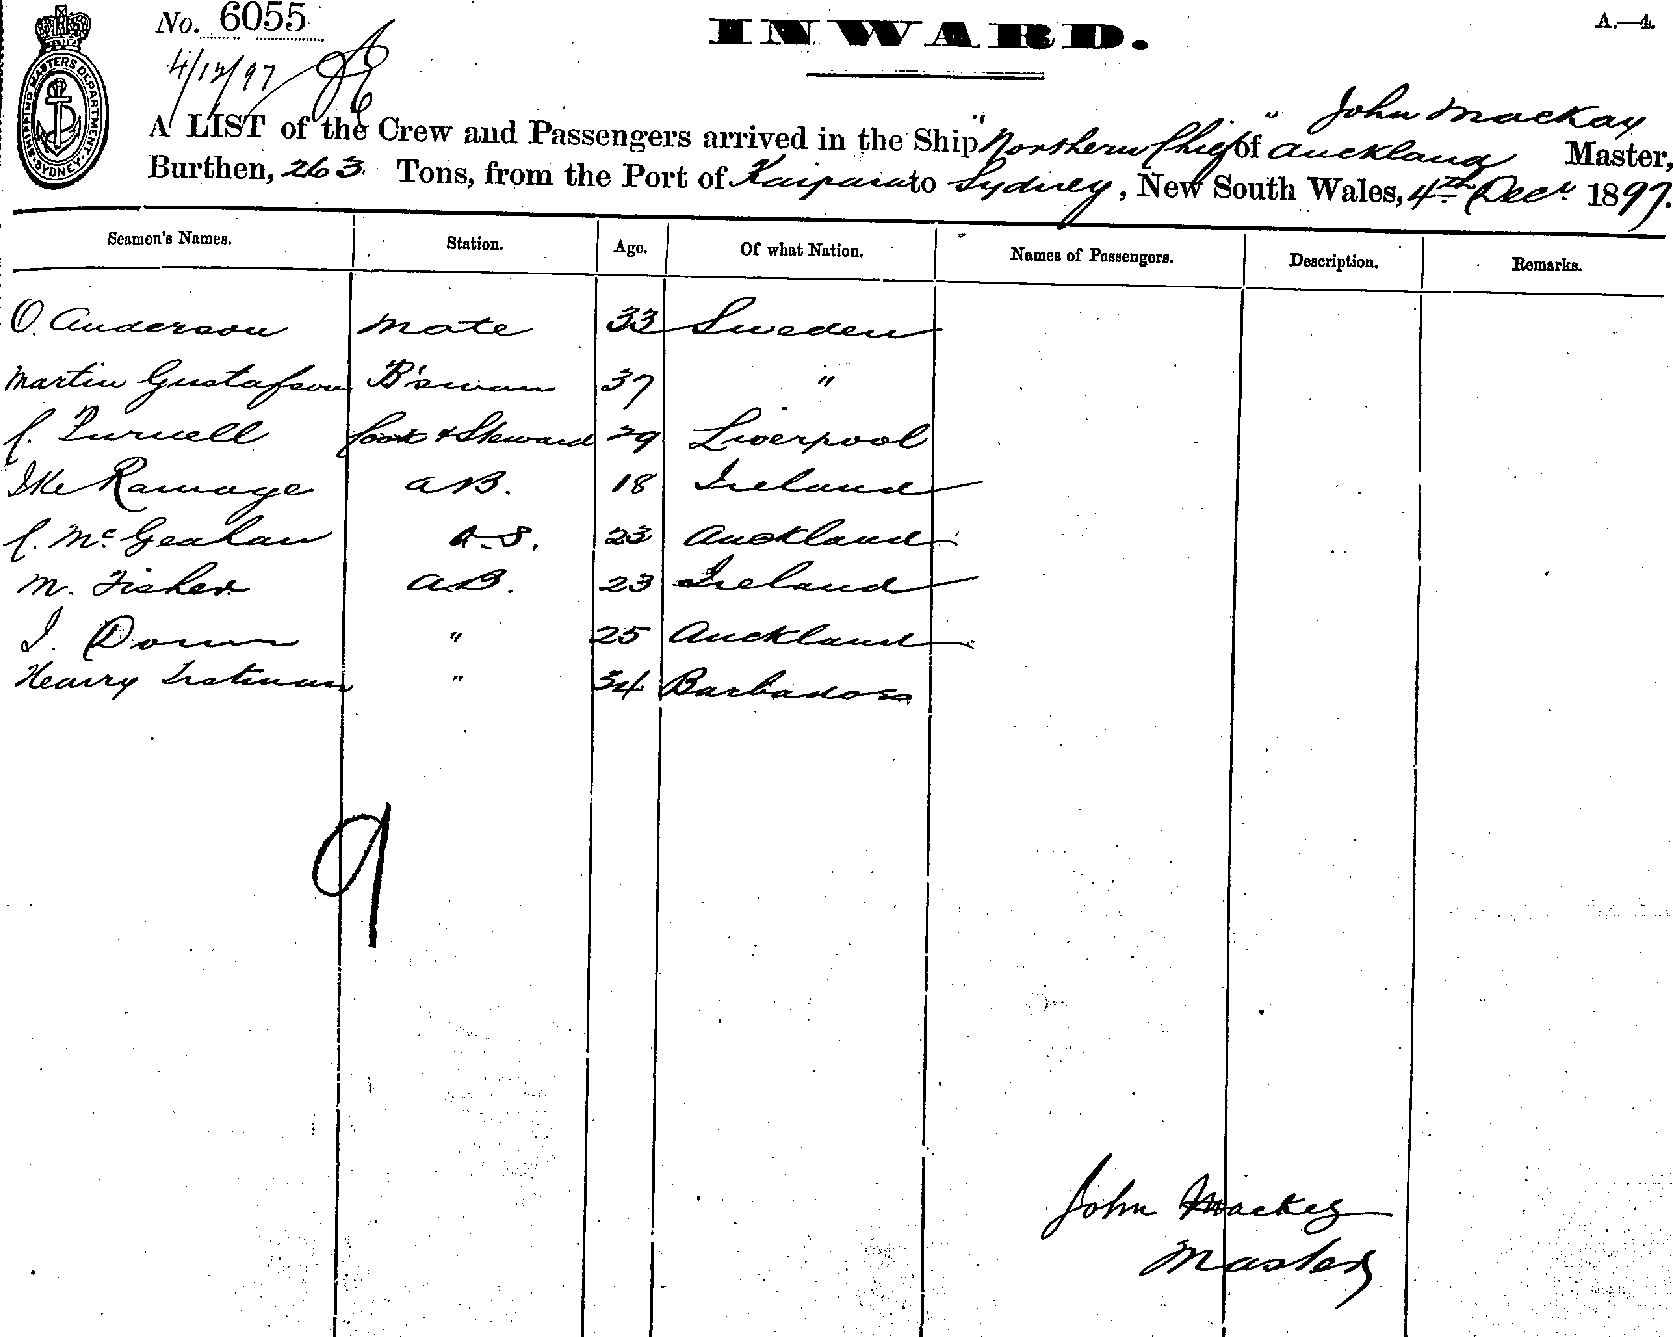 No. 6055
INWARD.
A.—4.
4/12/97
SHIPPING MASTERS DEPARTMENT
SYDNEY
John Mackay
A LIST of the Crew and Passengers arrived in the Ship "Northern Chief" of Auckland Master,
Burthen, 263 Tons, from the Port of Kaipara to Sydney, New South Wales, 4th Decr 1897.
Seamen's Names. Station. Age. Of what Nation. Names of Passengers. Description. Remarks.
O. Anderson Mate 33 Sweden
Martin Gustafson B'swan 37 "
C. Purnell Cook & Steward 29 Liverpool
Ramage A.B. 18 Ireland
C. McGeahan O.S. 23 Auckland
M. Fisher A.B. 23 Ireland
J. " 25 Auckland
Henry " 34 Barbados
9
John Mackay
Master